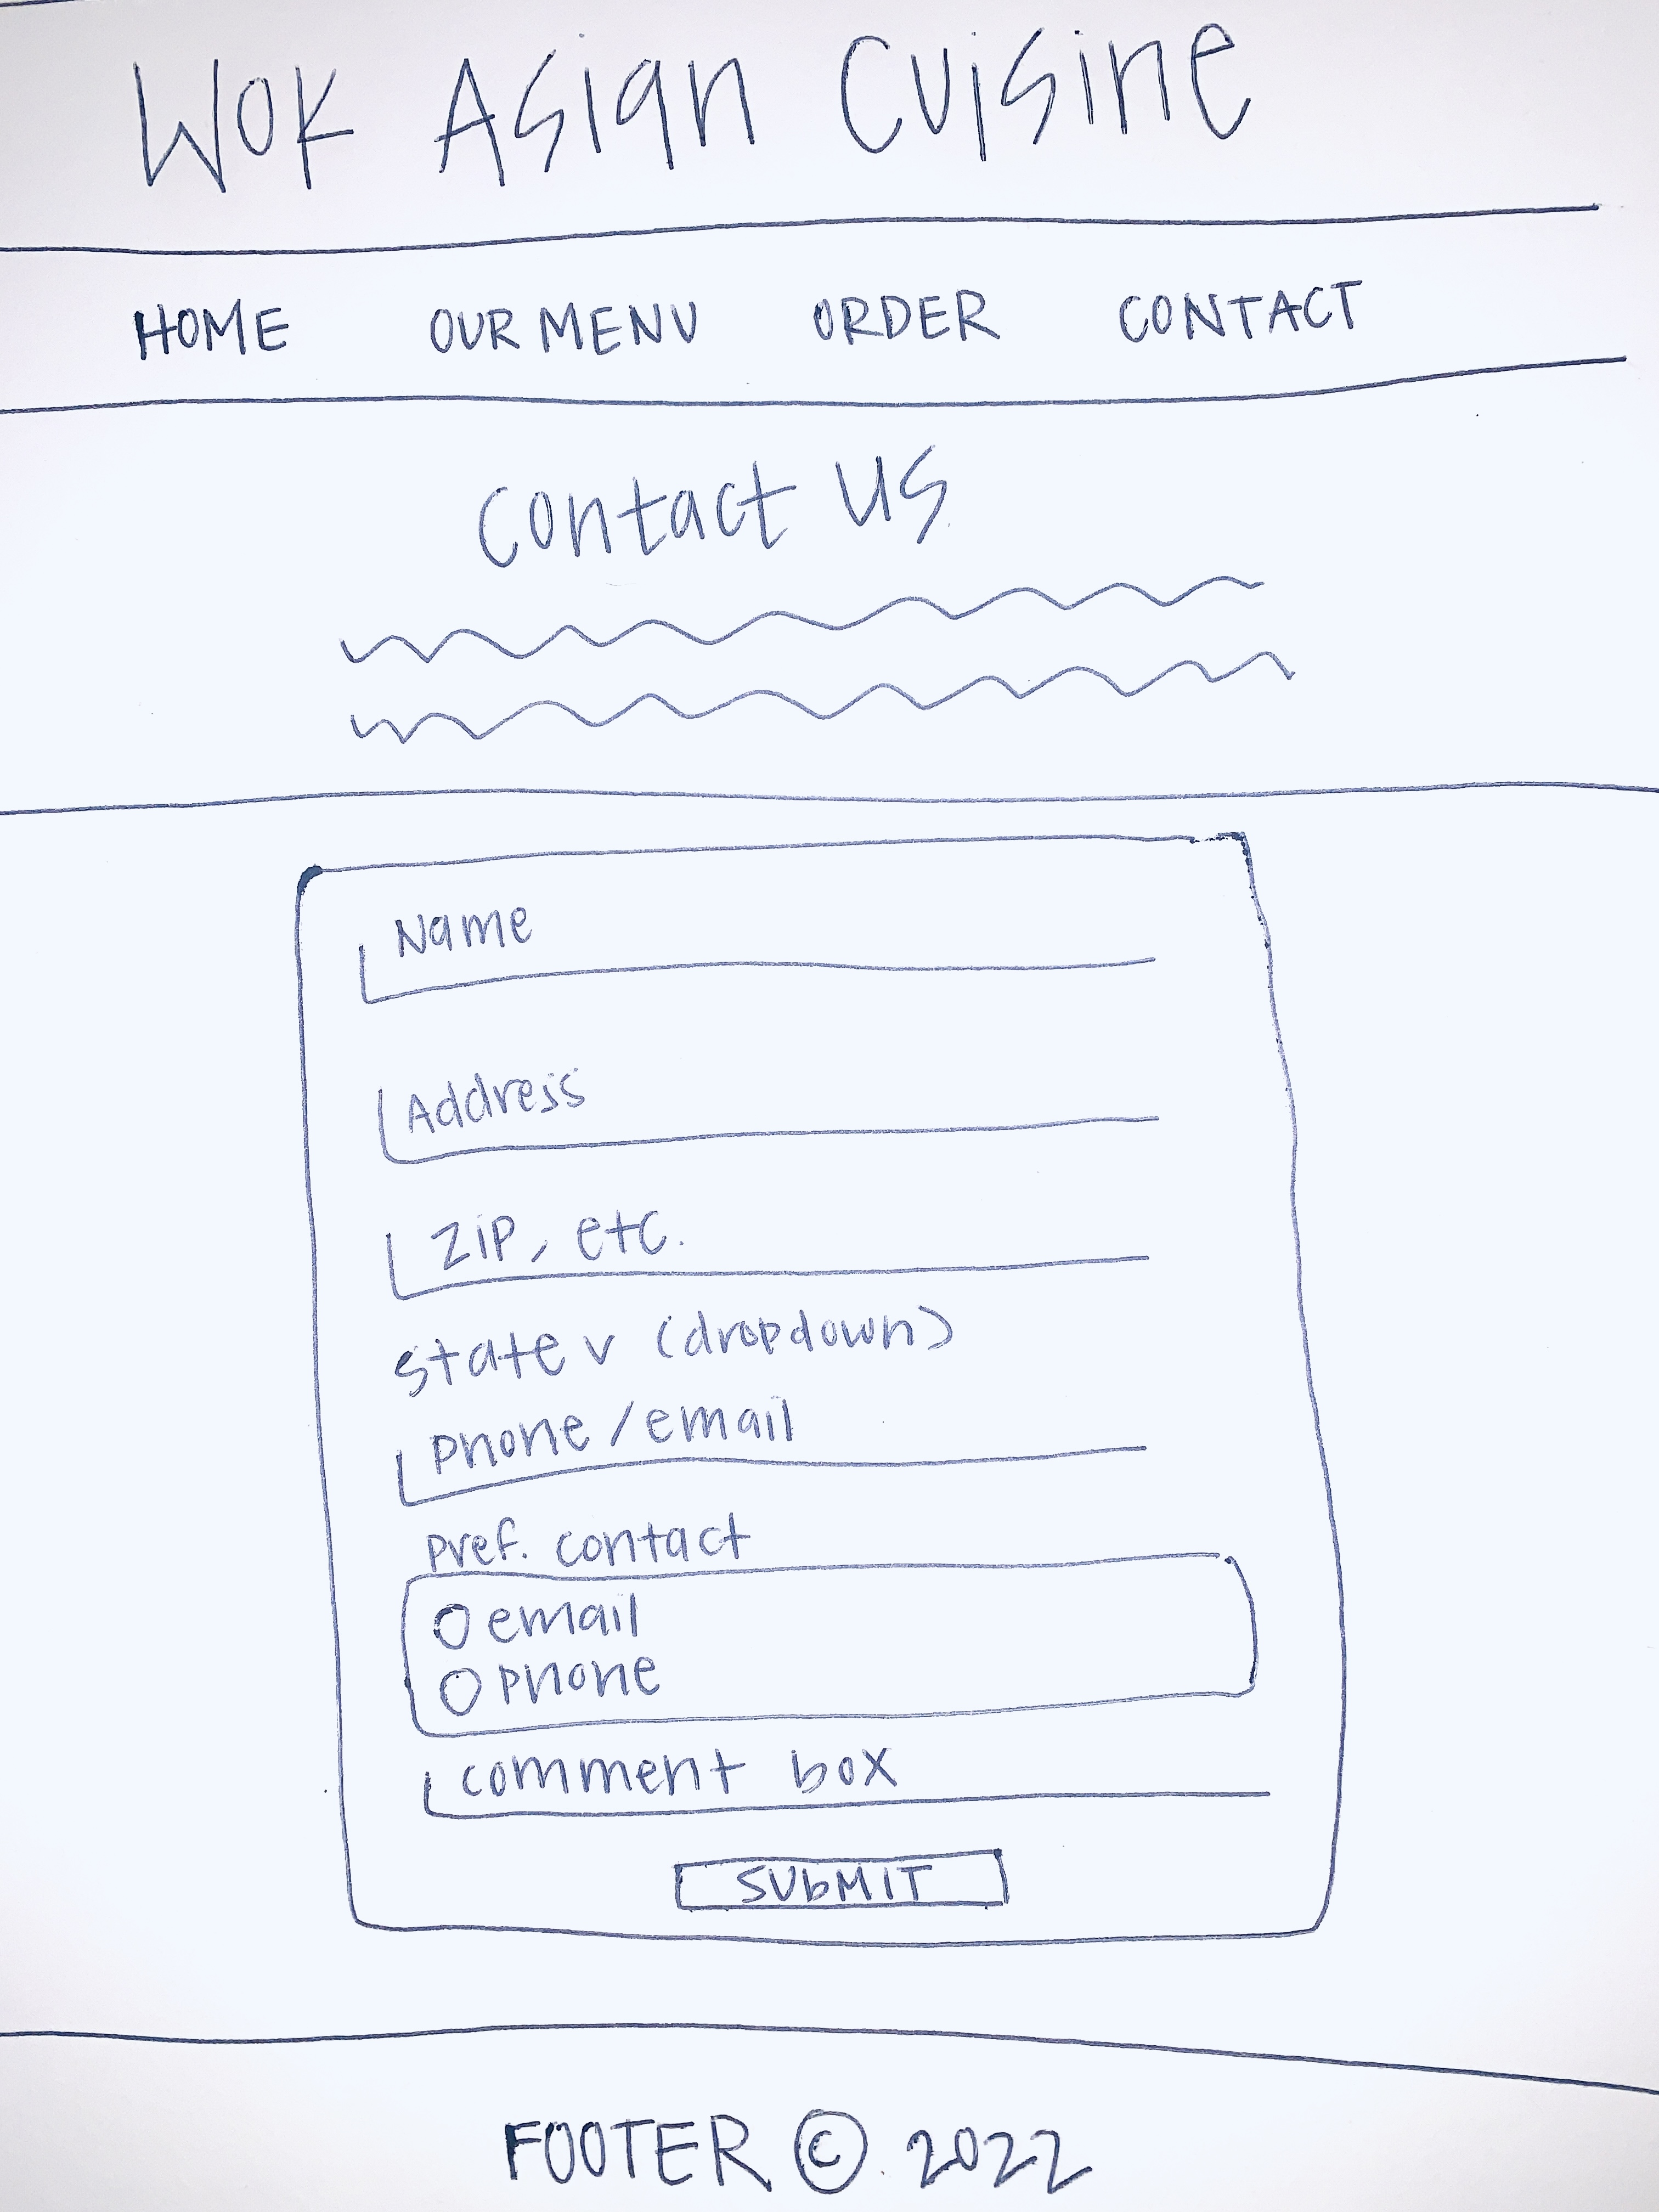 Wok Asian Cuisine
HOME OUR MENU ORDER CONTACT
Contact Us
Name
Address
ZIP, etc.
state v (dropdown)
phone/email
pref. contact
O email
O phone
comment box
SUbMIT
FOOTER © 2022